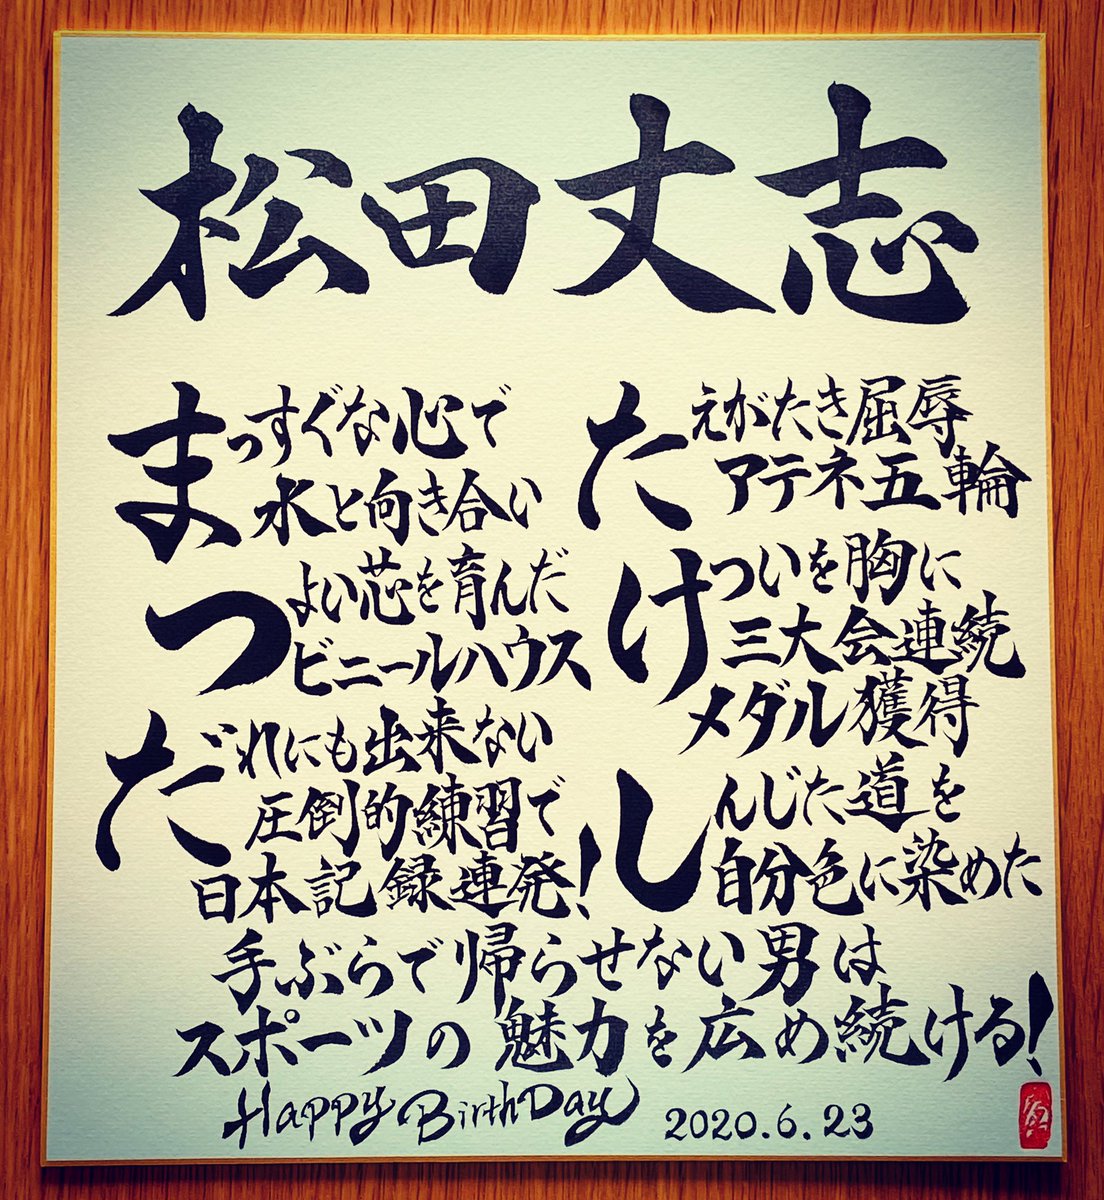 松田丈志
まっすぐな心で
水と向き合い
つよい芯を育んだ
ビニールハウス
だれにも出来ない
圧倒的練習で
日本記録連発!
たえがたき屈辱
アテネ五輪
けついを胸に
三大会連続
メダル獲得
しんじた道を
自分色に染めた
手ぶらで帰らせない男は
スポーツの魅力を広め続ける!
Happy BirthDay 2020.6.23